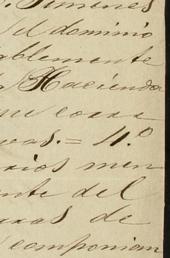 . Jimenes
el dominio
blemente
Hacienda
que coxa
uas. = 11.º
xios men
nte del
uxas de
componian